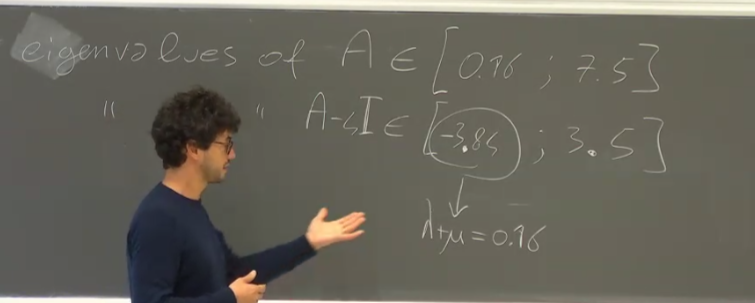 eigenvalues of A ∈ [0.16 ; 7.5]
" " A-4I ∈ [-3.84 ; 3.5]
λ+μ = 0.16